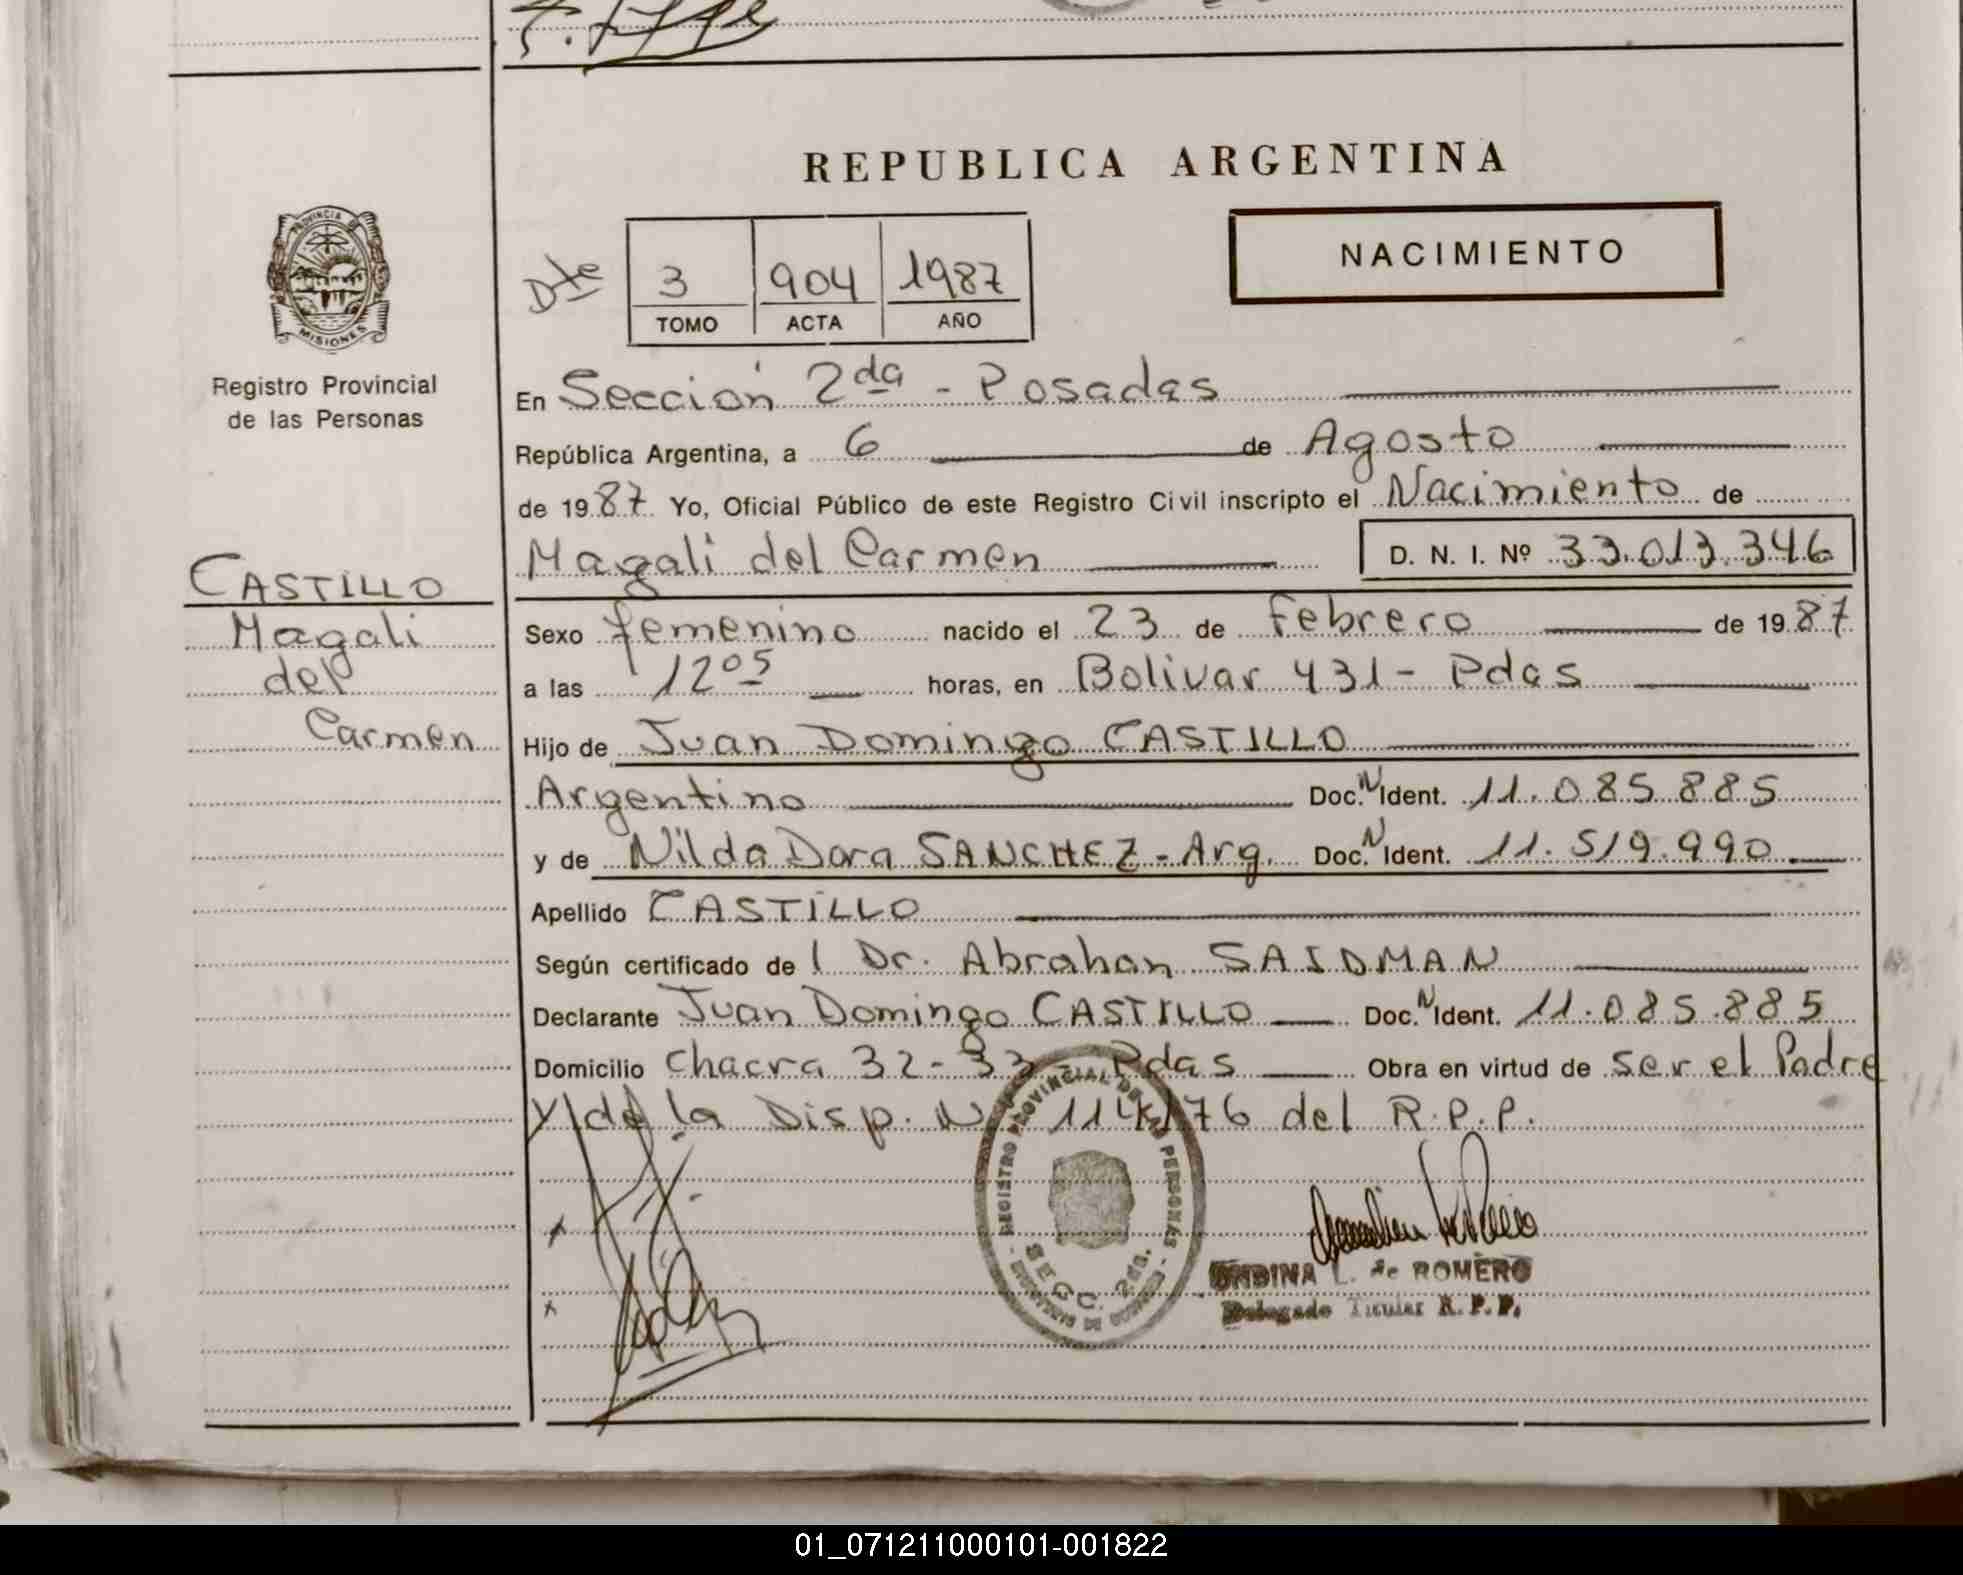 REPUBLICA ARGENTINA
PROVINCIA DE
MISIONES
Registro Provincial
de las Personas
NACIMIENTO
Dte
3 904 1987
TOMO ACTA AÑO
En Sección 2da - Posadas
República Argentina, a 6 de Agosto
de 1987 Yo, Oficial Público de este Registro Civil inscripto el Nacimiento de
Magali del Carmen D. N. I. Nº 33.013.346
CASTILLO
Magali
del
Carmen
Sexo femenino nacido el 23 de Febrero de 1987
a las 12 05 horas, en Bolivar 431 - Pdas
Hijo de Juan Domingo CASTILLO
Argentino Doc. N Ident. 11.085.885
y de Nilda Dora SANCHEZ - Arg. Doc. N Ident. 11.519.990
Apellido CASTILLO
Según certificado del Dr. Abrahan SAIDMAN
Declarante Juan Domingo CASTILLO Doc. N Ident. 11.085.885
Domicilio Chacra 32-33 - Pdas Obra en virtud de ser el Padre
y/de la Disp. N 114/76 del R.P.P.
REGISTRO PROVINCIAL DE LAS PERSONAS
SECC. 2da.
ONDINA L. de ROMERO
Delegado Titular R. P. P.
01_071211000101-001822